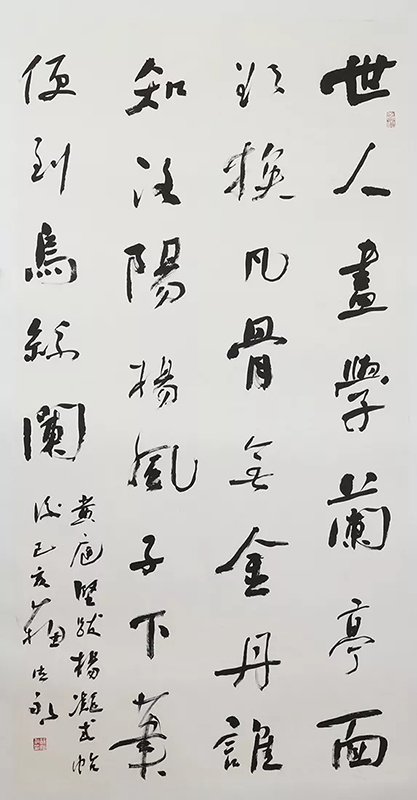 世人盡學蘭亭面
欲換凡骨無金丹誰
知洛陽楊風子下筆
便到烏絲闌
黃庭堅跋楊凝式帖
後己亥